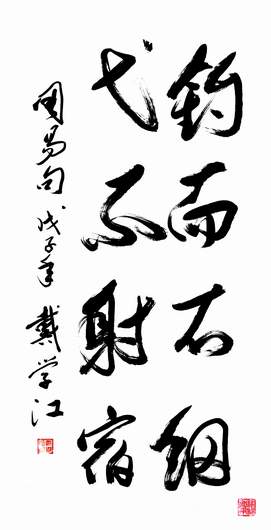 钓而不纲
弋不射宿
周易句戊子年戴学江